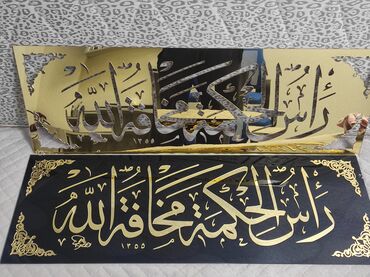 رأس الحكمة مخافة الله
١٣٥٥
رأس الحكمة مخافة الله
١٣٥٥